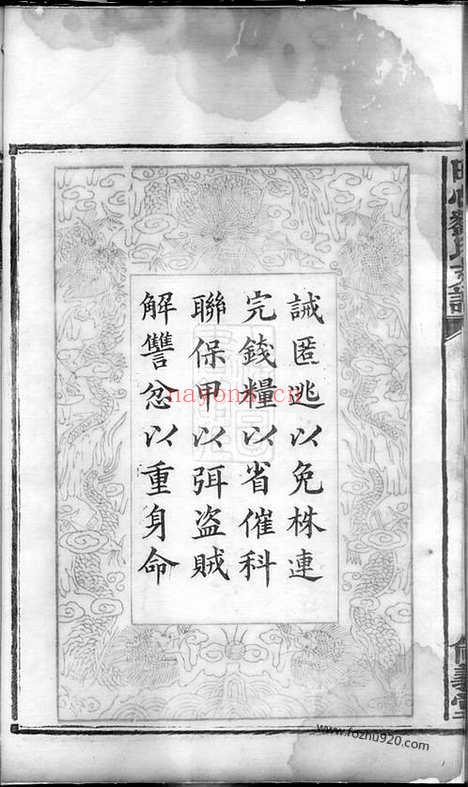 誡匿逃以免株連
完錢糧以省催科
聯保甲以弭盜賊
解讐忿以重身命
nayona.cn
www.fozhu920.com